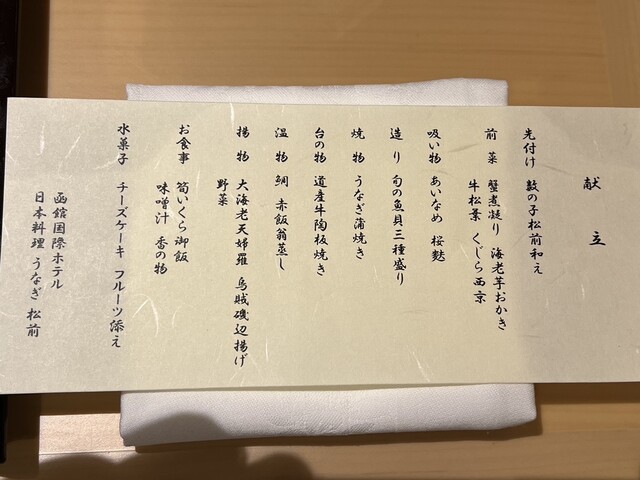 献立
先付け 数の子松前和え
前菜 蟹煮凝り 海老芋おかき
牛松葉 くじら西京
吸い物 あいなめ 桜麩
造り 旬の魚貝三種盛り
焼物 うなぎ蒲焼き
台の物 道産牛陶板焼き
温物 鯛 赤飯翁蒸し
揚物 大海老天婦羅 烏賊磯辺揚げ
野菜
お食事 筍いくら御飯
味噌汁 香の物
水菓子 チーズケーキ フルーツ添え
函館国際ホテル
日本料理 うなぎ 松前